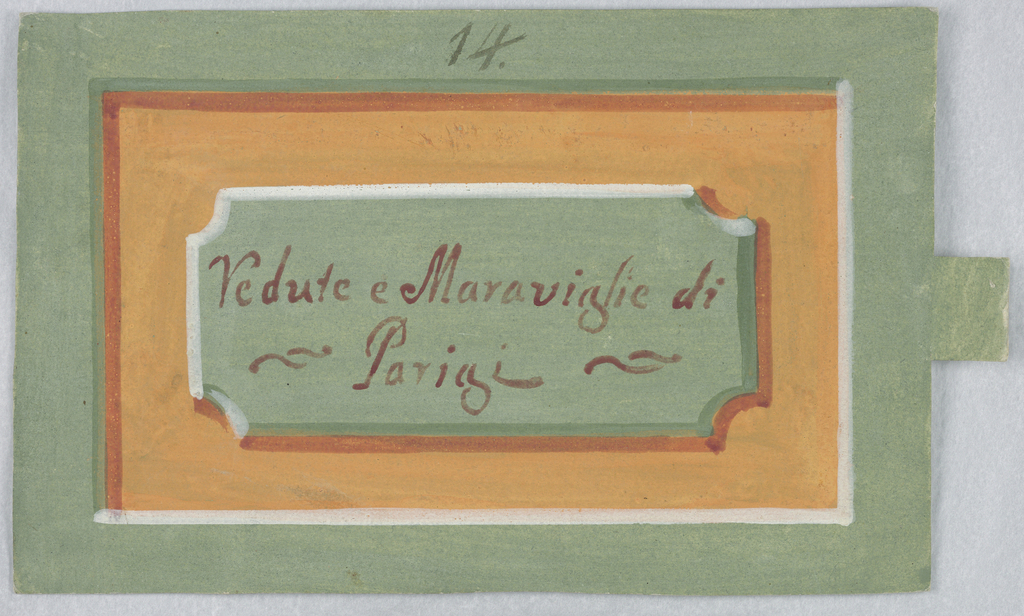 14.
Vedute e Maraviglie di
Parigi